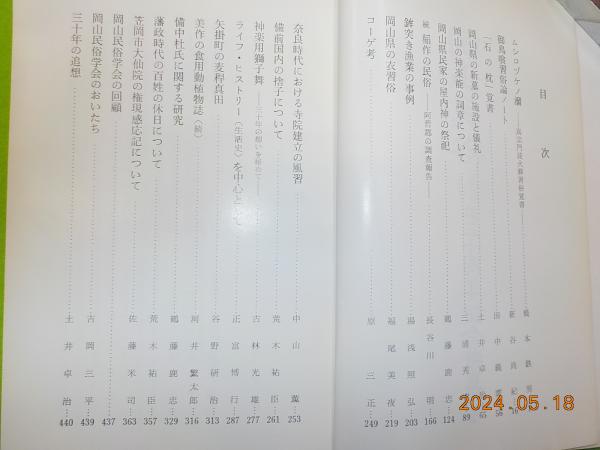 目次
ムシロヅケノ瀬
御鳥喰習俗論ノート
「石の枕」覚書
岡山県の新墓の施設と儀礼
岡山の神楽能の詞章について
岡山県民家の屋内神の祭祀
続 稲作の民俗
鉾突き漁業の事例
岡山県の衣習俗
コーゲ考
土井卓治 65
三浦秀 89
鶴藤鹿忠 124
長谷川明 166
湯浅照弘 203
福尾美夜 219
原三正 249
奈良時代における寺院建立の風習 中山薫 253
備前国内の捨子について 荒木祐臣 261
神楽用獅子舞 ――三十年の想いを秘めて―― 古林光雄 277
ライフ・ヒストリー(生活史)を中心として 正富博行 287
矢掛町の麦稈真田 谷野研治 313
美作の食用動植物誌(続) 河井繁太郎 316
備中杜氏に関する研究 鶴藤鹿忠 329
藩政時代の百姓の休日について 荒木祐臣 357
笠岡市大仙院の権現感応記について 佐藤米司 363
岡山民俗学会の回顧 437
岡山民俗学会のおいたち 古岡三平 439
三十年の追想 土井卓治 440
2024.05.18